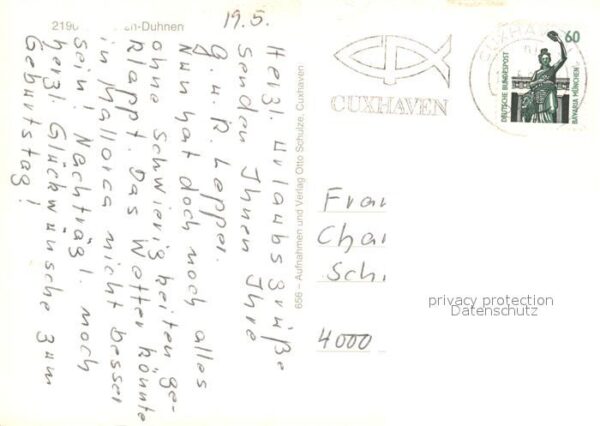 19.5.
Herzl. Urlaubsgrüße
senden Ihnen Ihre
G. u. R. Lepper.
Nun hat doch noch alles
ohne Schwierigkeiten ge-
klappt. Das Wetter könnte
in Mallorca nicht besser
sein! Nachträgl. noch
herzl. Glückwünsche zum
Geburtstag!
-Duhnen
656 – Aufnahmen und Verlag Otto Schulze, Cuxhaven
CUXHAVEN
CUXHAVEN
60
DEUTSCHE BUNDESPOST
BAVARIA MÜNCHEN
Frau
4000
privacy protection
Datenschutz